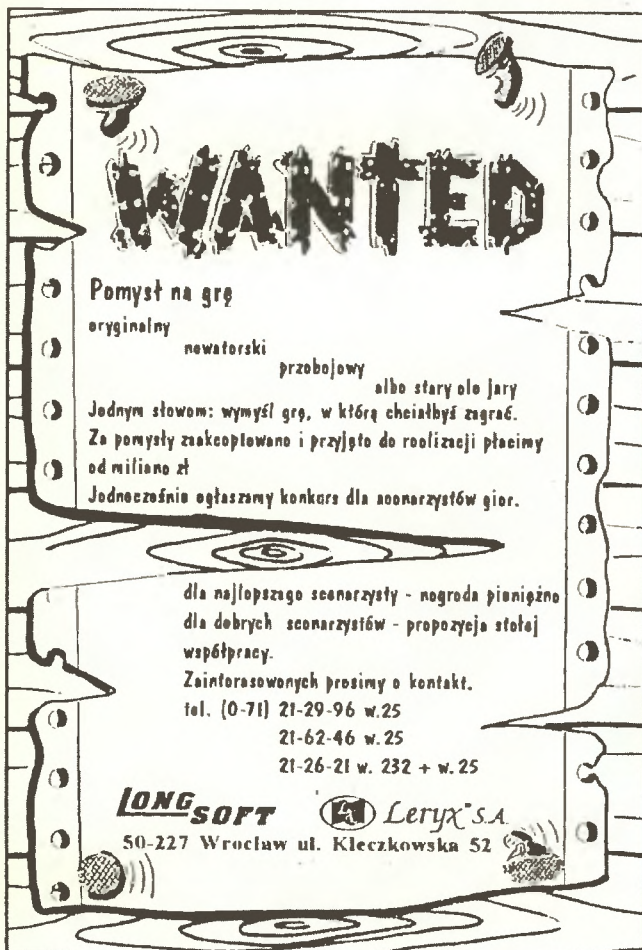 WANTED
Pomysł na grę
oryginalny
nowatorski
przebojowy
albo stary ale jary
Jednym słowem: wymyśl grę, w którą chciałbyś zagrać.
Za pomysły zaakceptowane i przyjęte do realizacji płacimy
od miliona zł
Jednocześnie ogłaszamy konkurs dla scenarzystów gier.
dla najlepszego scenarzysty - nagroda pieniężna
dla dobrych scenarzystów - propozycja stałej
współpracy.
Zainteresowanych prosimy o kontakt.
tel. (0-71) 21-29-96 w.25
21-62-46 w.25
21-26-21 w. 232 + w.25
LONG SOFT Leryx S.A.
50-227 Wrocław ul. Kleczkowska 52